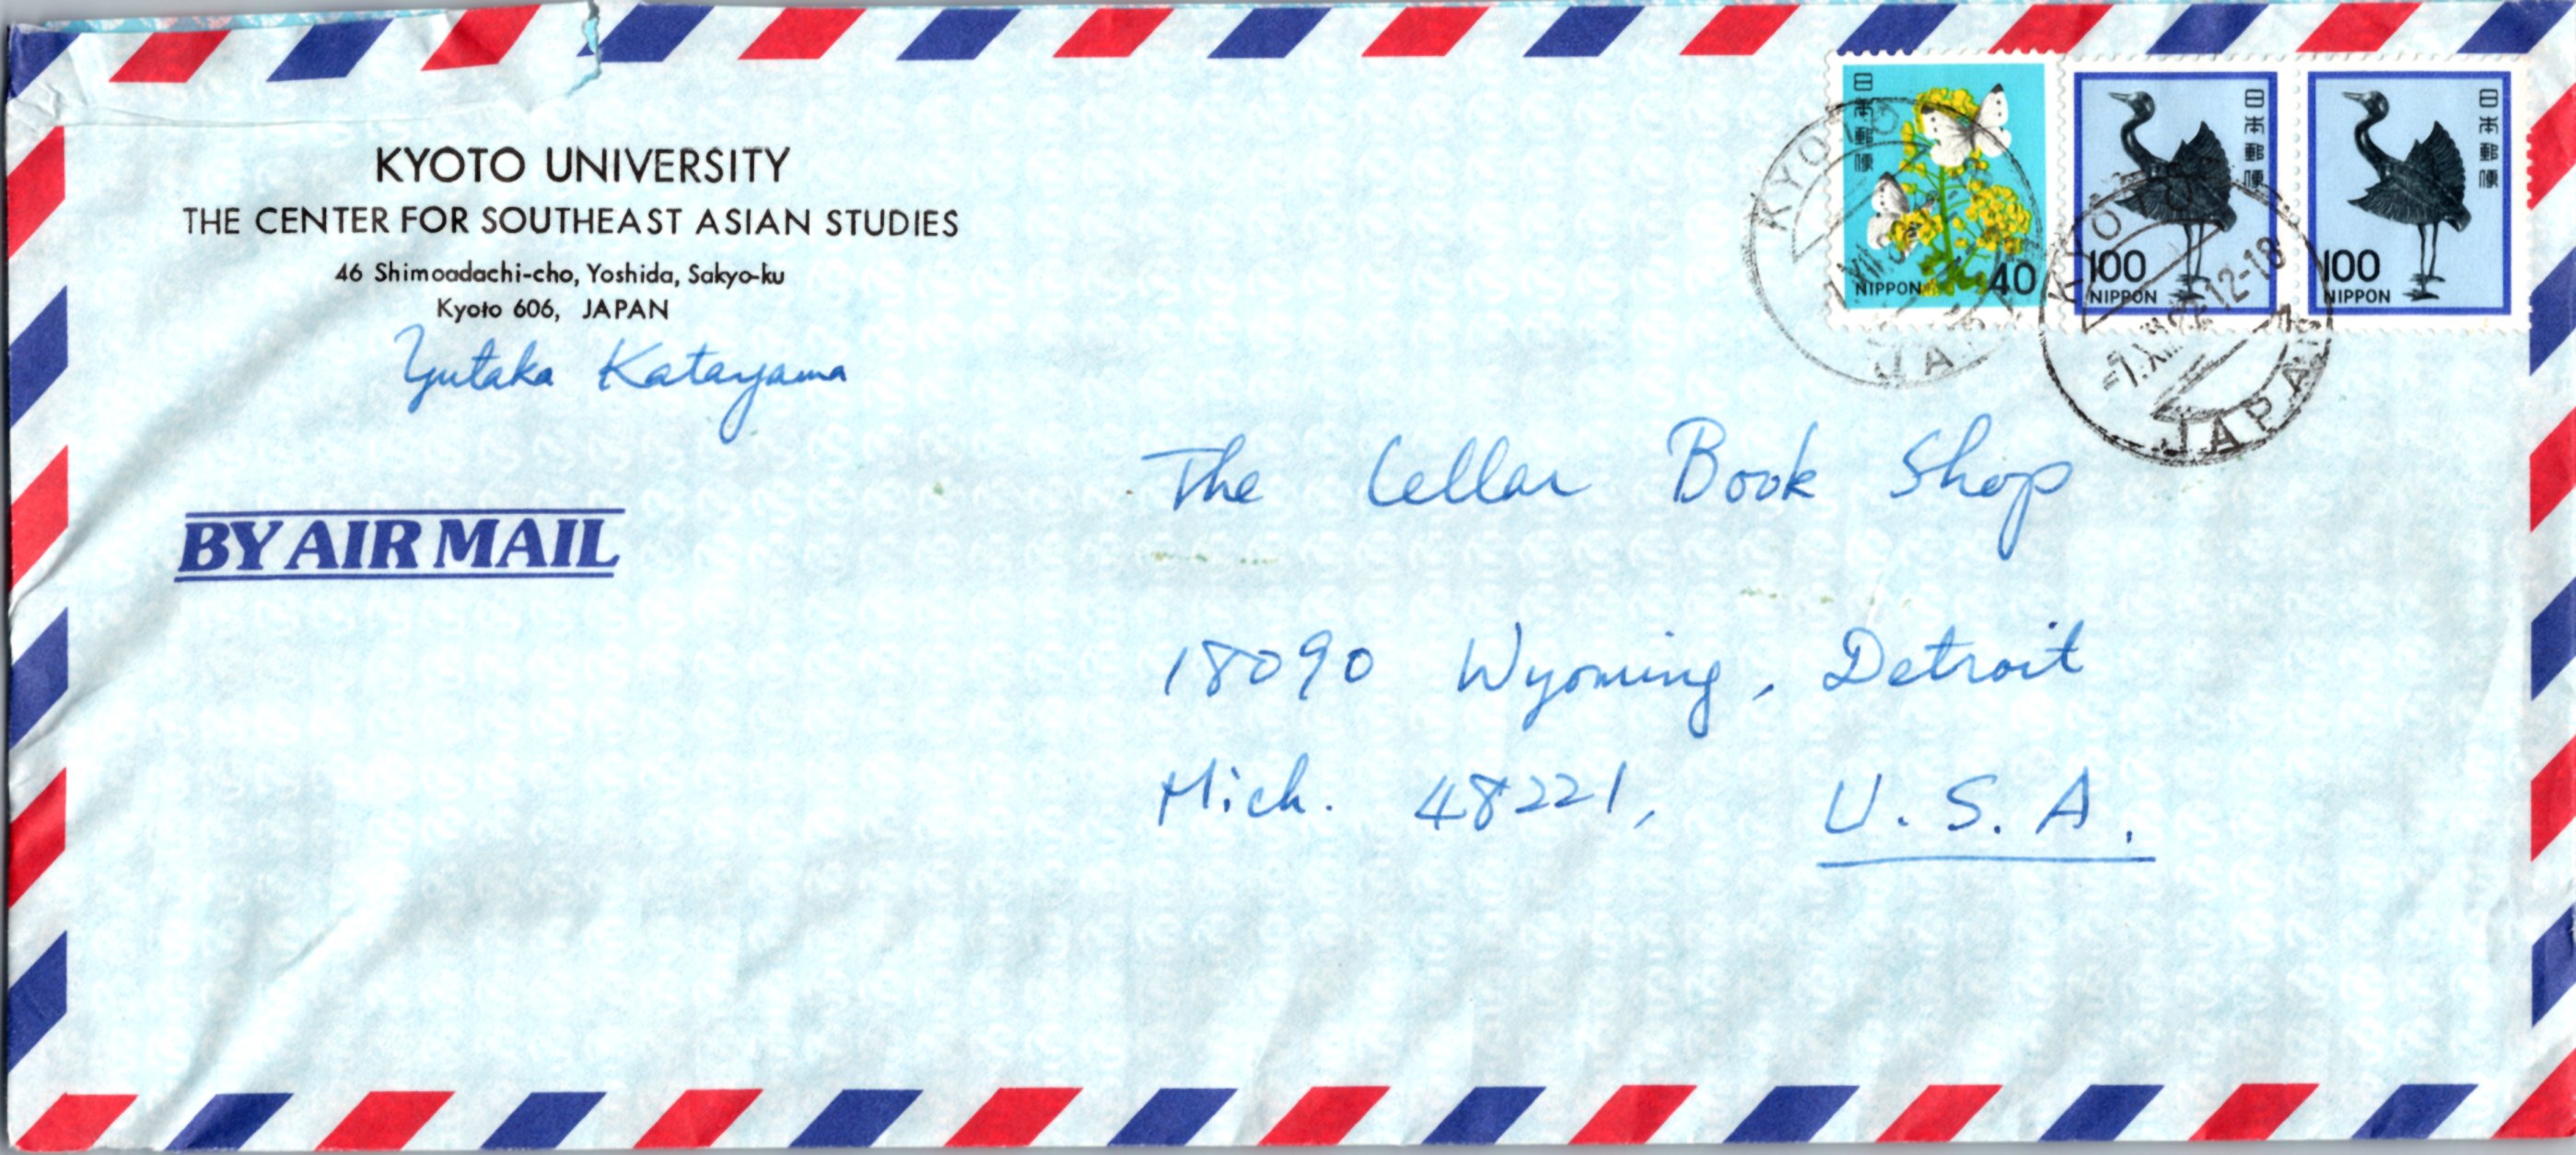 KYOTO UNIVERSITY
THE CENTER FOR SOUTHEAST ASIAN STUDIES
46 Shimoadachi-cho, Yoshida, Sakyo-ku
Kyoto 606, JAPAN
Yutaka Katayama
BY AIR MAIL
日本郵便
40
NIPPON
日本郵便
100
NIPPON
日本郵便
100
NIPPON
KYOTO
JAPAN
12-18
JAPAN
The Cellar Book Shop
18090 Wyoming, Detroit
Mich. 48221, U.S.A.